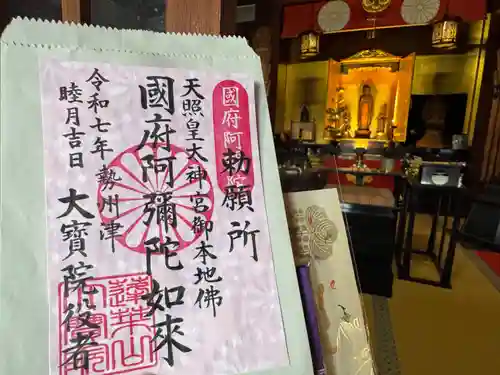 勅願所
國府阿
天照皇大神宮御本地佛
國府阿彌陀如來
勢州津
大寶院役者
令和七年
睦月吉日